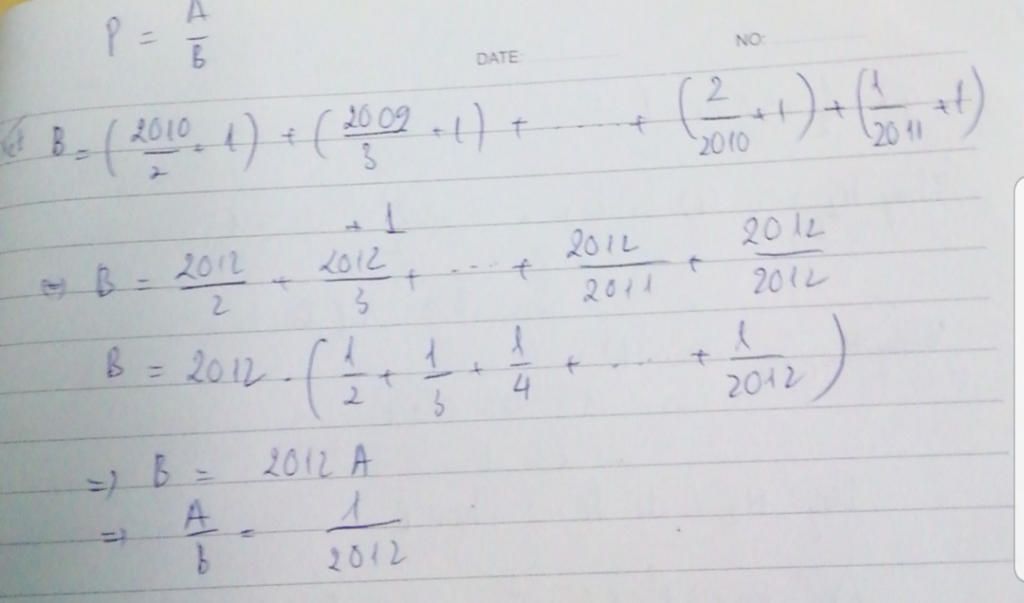 P = A/B
DATE: NO:
B = (2010/2 + 1) + (2009/3 + 1) + ..... + (2/2010 + 1) + (1/2011 + 1)
+ 1
⇒ B = 2012/2 + 2012/3 + .... + 2012/2011 + 2012/2012
B = 2012 . (1/2 + 1/3 + 1/4 + .... + 1/2012)
⇒ B = 2012 A
⇒ A/b = 1/2012